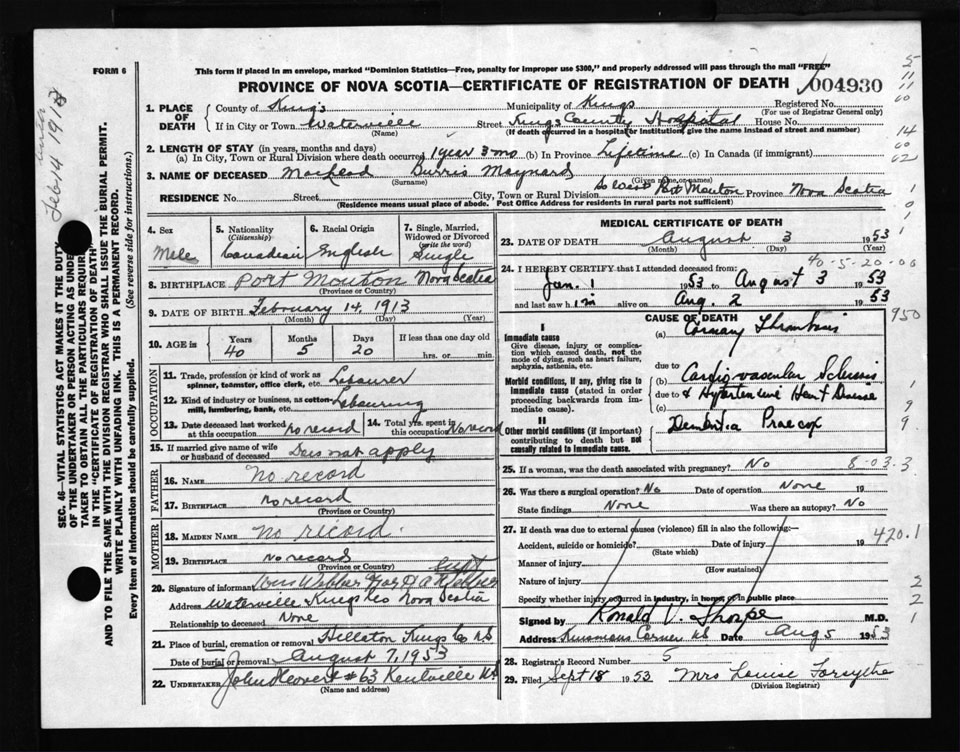 FORM 6
This form if placed in an envelope, marked "Dominion Statistics—Free, penalty for improper use $300," and properly addressed will pass through the mail "FREE"
PROVINCE OF NOVA SCOTIA—CERTIFICATE OF REGISTRATION OF DEATH 004930
1. PLACE OF DEATH
County of Kings Municipality of Kings Registered No.
(For use of Registrar General only)
If in City or Town Waterville Street Kings County Hospital House No.
(Name) (If death occurred in a hospital or institution, give the name instead of street and number)
2. LENGTH OF STAY (in years, months and days)
(a) In City, Town or Rural Division where death occurred 1 year 3 mo (b) In Province Lifetime (c) In Canada (if immigrant)
3. NAME OF DECEASED MacLeod Burris Maynard
(Surname) (Given name or names)
RESIDENCE No. Street City, Town or Rural Division So West Port Mouton Province Nova Scotia
(Residence means usual place of abode. Post Office Address for residents in rural parts not sufficient)
4. Sex Male
5. Nationality (Citizenship) Canadian
6. Racial Origin English
7. Single, Married, Widowed or Divorced (write the word) Single
8. BIRTHPLACE Port Mouton Nova Scotia
(Province or Country)
9. DATE OF BIRTH February 14, 1913
(Month) (Day) (Year)
10. AGE in Years 40 Months 5 Days 20 If less than one day old hrs. or min.
OCCUPATION
11. Trade, profession or kind of work as spinner, teamster, office clerk, etc. Labourer
12. Kind of industry or business, as cotton-mill, lumbering, bank, etc. Labouring
13. Date deceased last worked at this occupation No record
14. Total yrs. spent in this occupation No record
15. If married give name of wife or husband of deceased Does not apply
FATHER
16. NAME No record
17. BIRTHPLACE No record
(Province or Country)
MOTHER
18. MAIDEN NAME No record
19. BIRTHPLACE No record
(Province or Country)
20. Signature of informant Webber
Address Waterville Kings Co Nova Scotia
Relationship to deceased None
21. Place of burial, cremation or removal Kings Co NS
Date of burial or removal August 7, 1953
22. UNDERTAKER John #63 Kentville NS
(Name and address)
MEDICAL CERTIFICATE OF DEATH
23. DATE OF DEATH August 3 1953
(Month) (Day) (Year)
40-5-20-00
24. I HEREBY CERTIFY that I attended deceased from:
Jan. 1 1953 to August 3 1953
and last saw him alive on Aug. 2 1953
CAUSE OF DEATH 950
I
Immediate cause
Give disease, injury or complication which caused death, not the mode of dying, such as heart failure, asphyxia, asthenia, etc.
(a) Coronary Thrombosis
due to
Morbid conditions, if any, giving rise to immediate cause (stated in order proceeding backwards from immediate cause).
(b) Cardio vascular Sclerosis
due to & Hypertensive Heart Disease
(c)
II
Other morbid conditions (if important) contributing to death but not causally related to immediate cause.
Dementia Praecox
25. If a woman, was the death associated with pregnancy? No 8-03-3
26. Was there a surgical operation? No Date of operation None 19
State findings None Was there an autopsy? No
27. If death was due to external causes (violence) fill in also the following:
Accident, suicide or homicide? Date of injury 19 420.1
(State which)
Manner of injury
(How sustained)
Nature of injury
Specify whether injury occurred in industry, in home, or in public place
Signed by Ronald V. Thorpe M.D.
Address Kinsmans Corner NS Date Aug 5 1953
28. Registrar's Record Number 5
29. Filed Sept 18 1953 Mrs Louise Forsythe
(Division Registrar)
Feb 14 1913
SEC. 46—VITAL STATISTICS ACT MAKES IT THE DUTY OF THE UNDERTAKER OR PERSON ACTING AS UNDERTAKER TO OBTAIN ALL THE PARTICULARS REQUIRED IN THE "CERTIFICATE OF REGISTRATION OF DEATH" AND TO FILE THE SAME WITH THE DIVISION REGISTRAR WHO SHALL ISSUE THE BURIAL PERMIT.
WRITE PLAINLY WITH UNFADING INK. THIS IS A PERMANENT RECORD.
Every item of information should be carefully supplied. (See reverse side for instructions.)